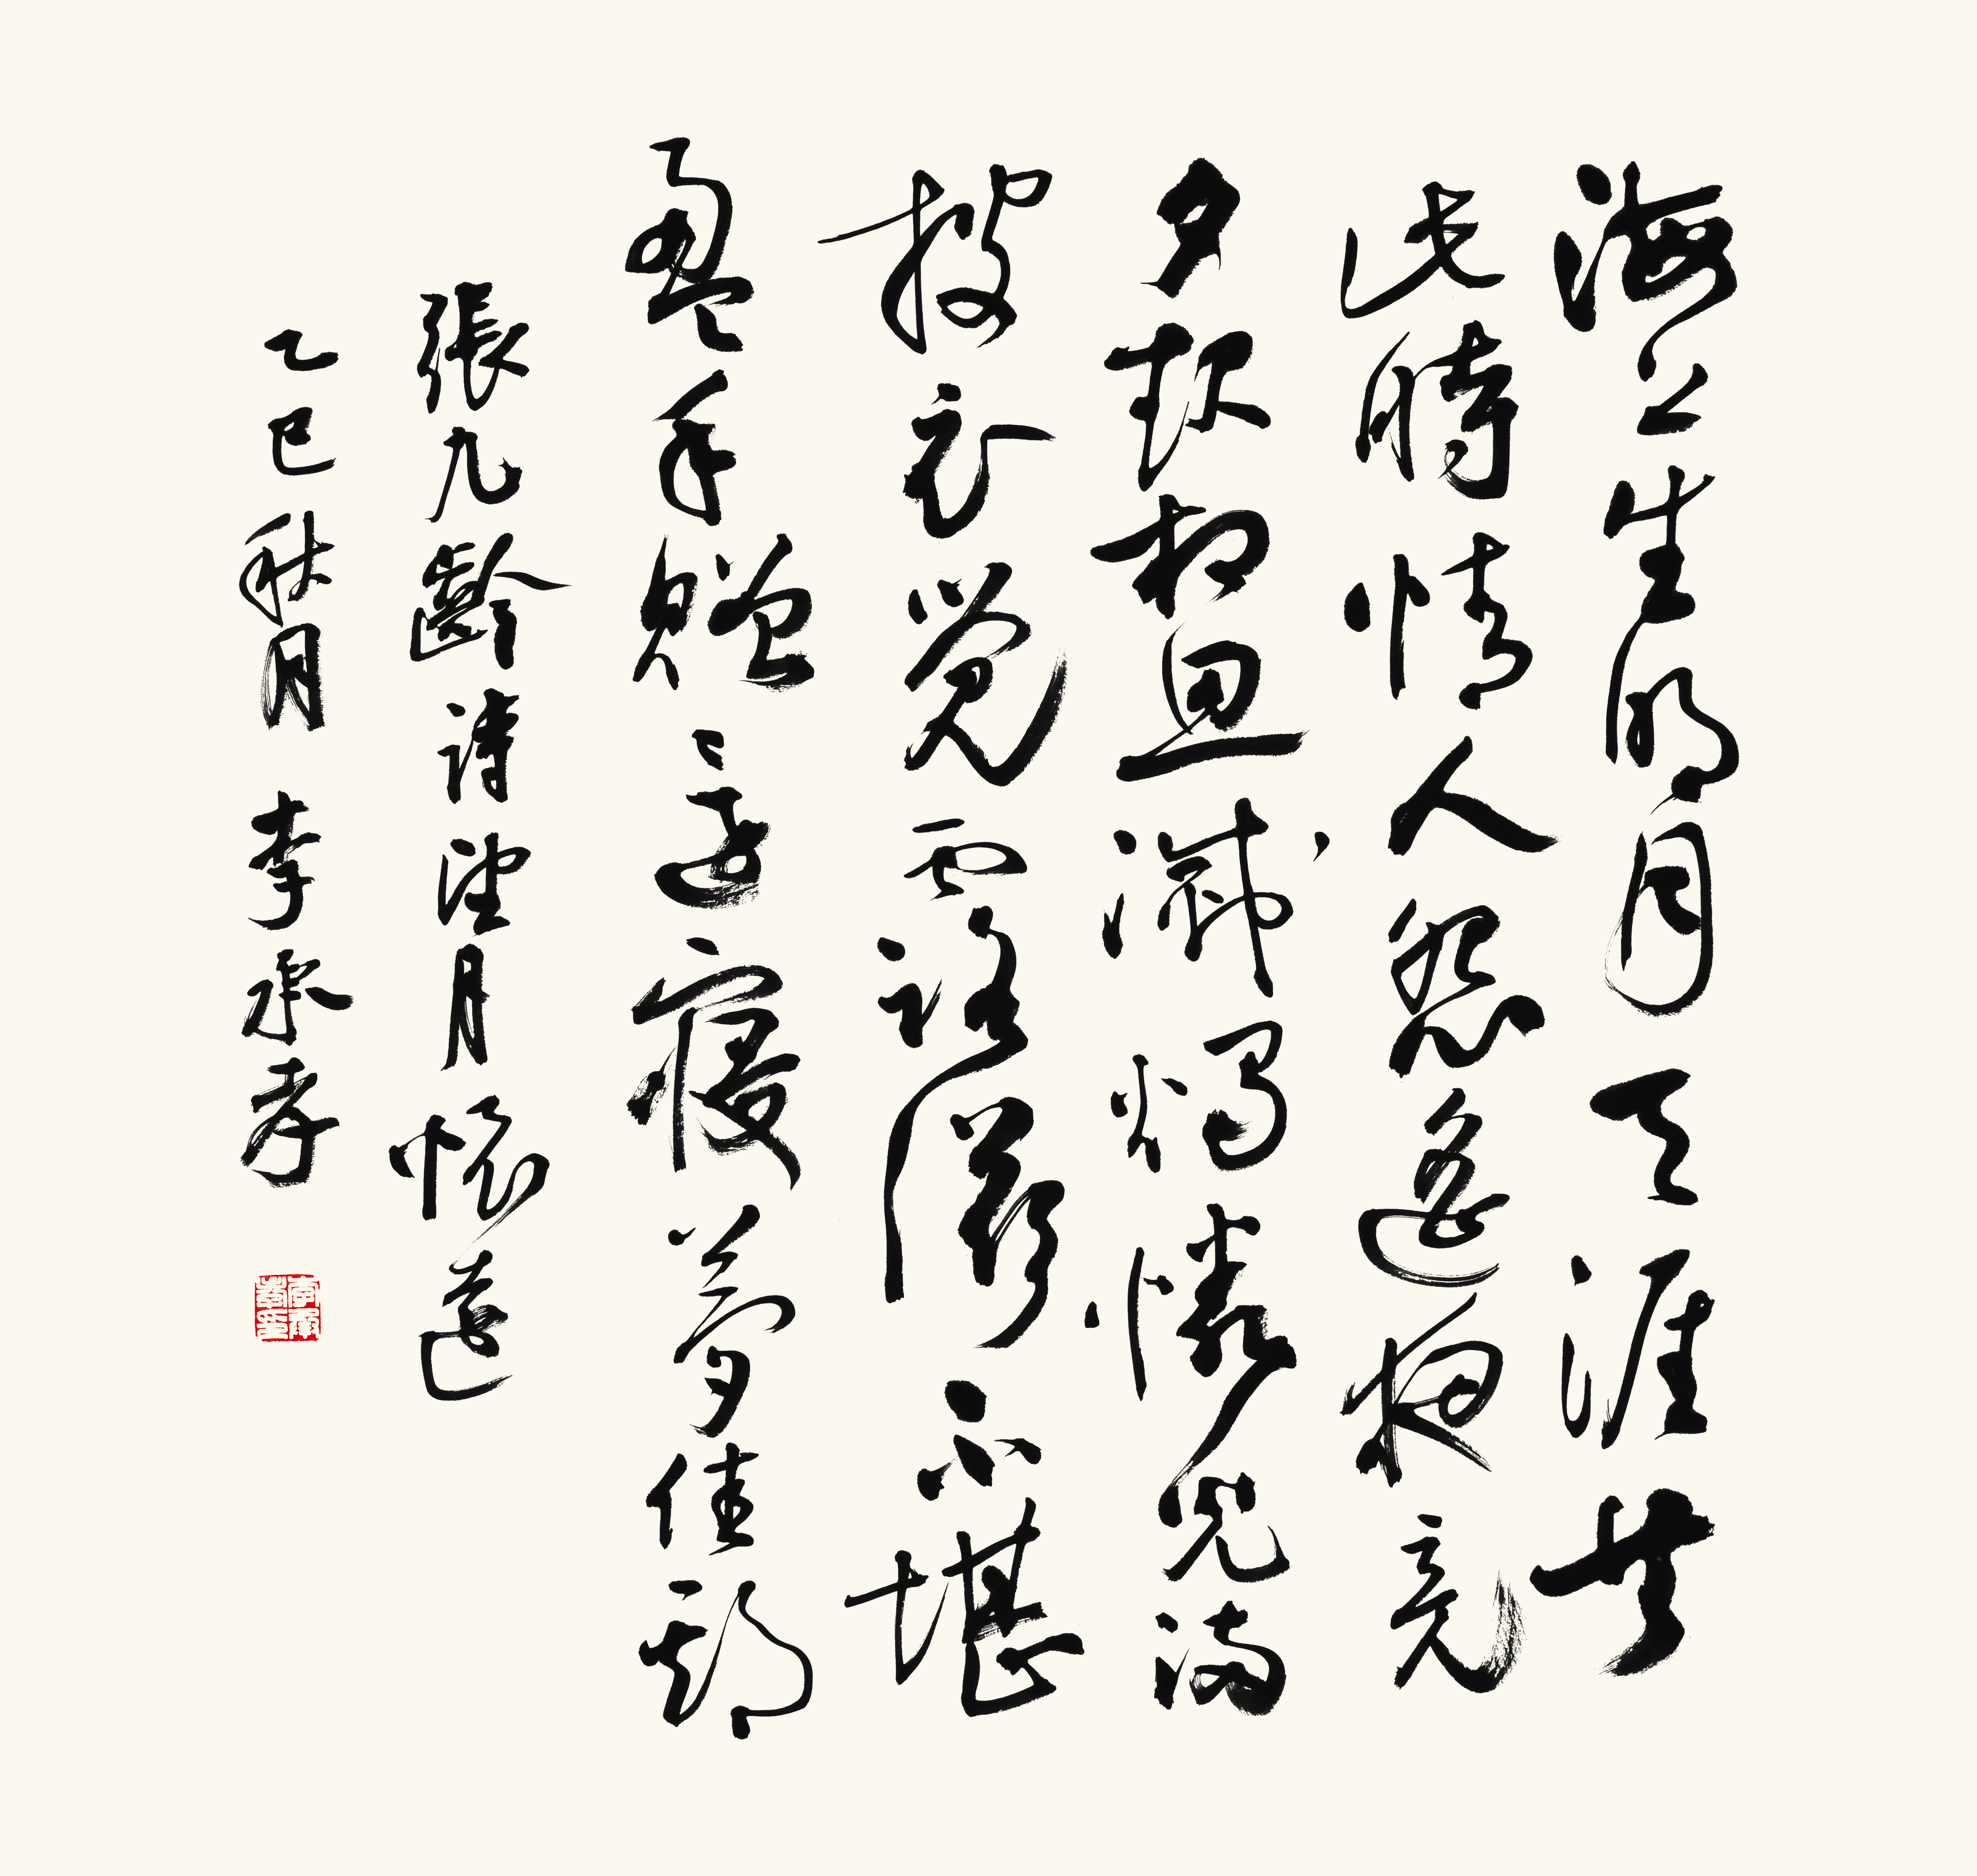 海上生明月天涯共
此時情人怨遙夜竟
夕起相思滅燭憐光滿
披衣覺露滋不堪
盈手贈還寢夢佳期
張九齡詩望月懷遠
乙巳秋月 李承孝
李承孝印